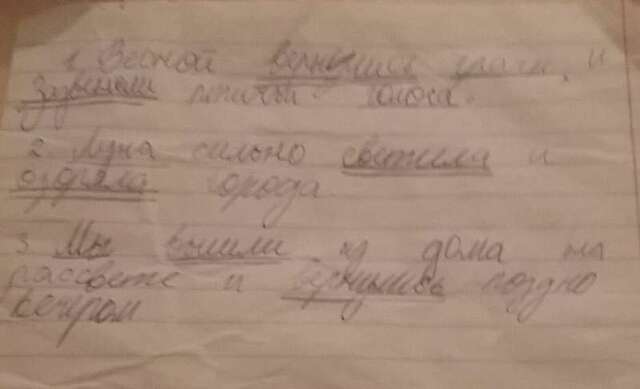 1. Весной вернулись грачи, и
зазвенели птичьи голоса.
2. Луна сильно светила и
озаряла города
3. Мы вышли из дома на
рассвете и вернулись поздно
вечером